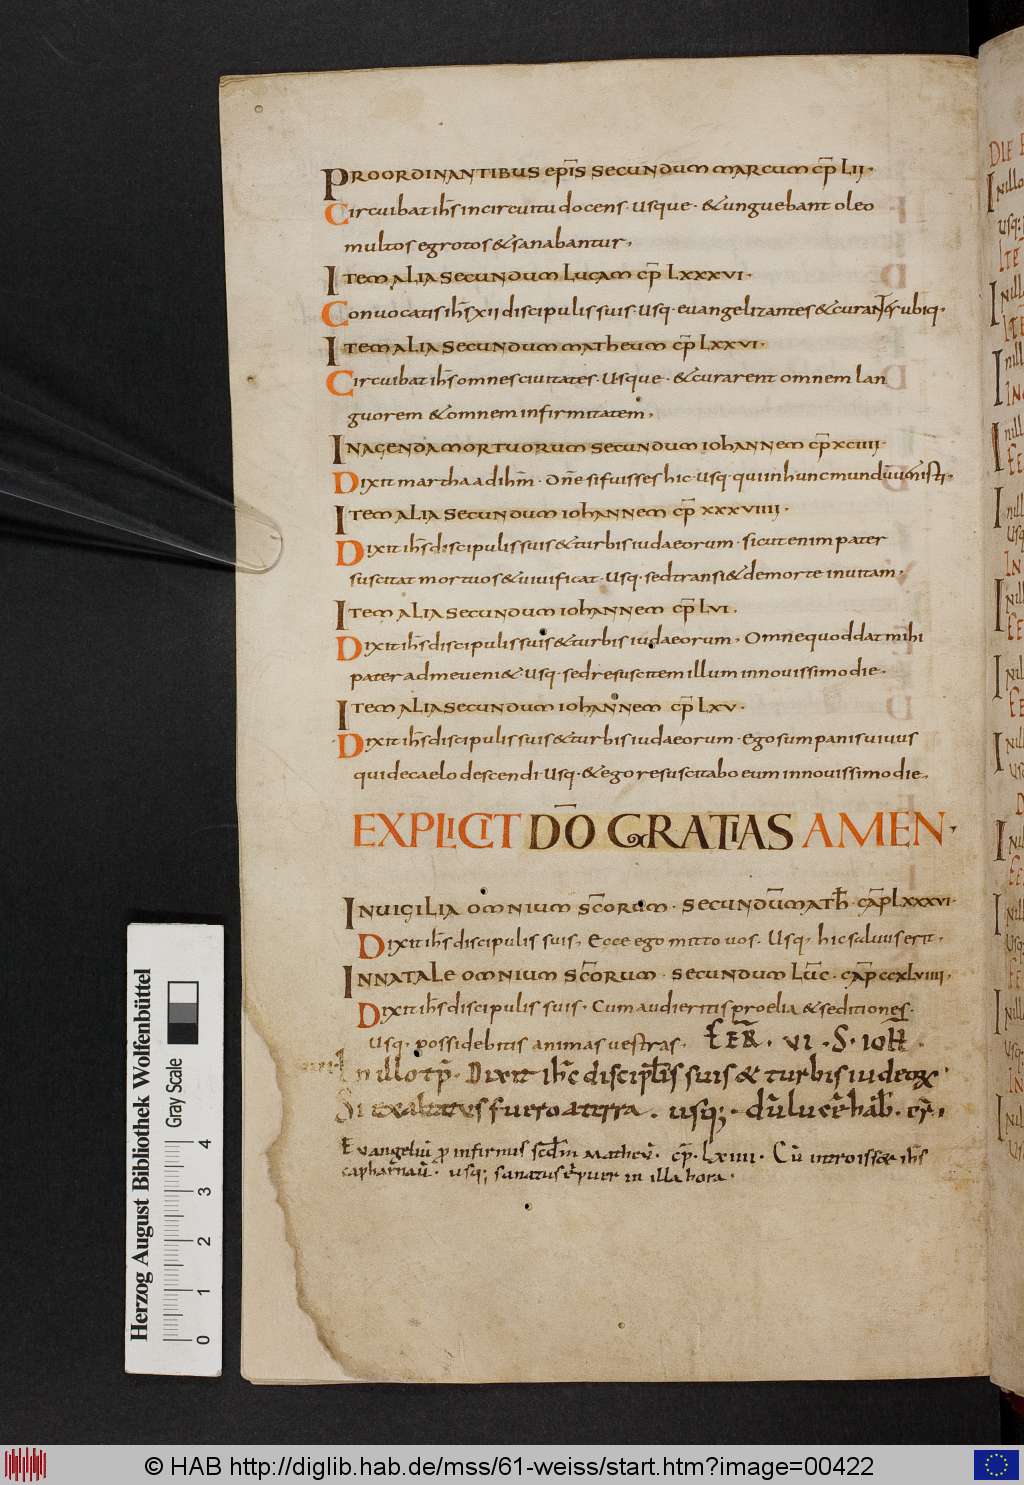 PROORDINANTIBUS EPĪS SECUNDUM MARCUM CP̄ LII·
Circuibat ih̄s incircuitu docens· usque· &unguebant oleo
multos egrotos &sanabantur,
ITEM ALIA SECUNDUM LUCAM CP̄ LXXXVI·
Conuocatis ih̄s xii discipulis suis· usq· euangelizantes &curantes ubiq·
ITEM ALIA SECUNDUM MATHEUM CP̄ LXXVI·
Circuibat ih̄s omnes ciuitates· Usque· &curarent omnem lan
guorem &omnem infirmitatem,
INAGENDA MORTUORUM SECUNDUM IOHANNEM CP̄ XCIIII·
Dixit martha ad ih̄m· Dn̄e si fuisses hic· usq· qui in hunc mundū uenisti,
ITEM ALIA SECUNDUM IOHANNEM CP̄ XXXVIIII·
Dixit ih̄s discipulis suis &turbis iudaeorum· sicut enim pater
suscitat mortuos &uiuificat· usq· sed transi& de morte in uitam,
ITEM ALIA SECUNDUM IOHANNEM CP̄ LVI,
Dixit ih̄s discipulis suis &turbis iudaeorum, Omne quod dat mihi
pater ad me ueni&· usq· sed resuscitem illum in nouissimo die·
ITEM ALIA SECUNDUM IOHANNEM CP̄ LXV·
Dixit ih̄s discipulis suis &turbis iudaeorum· ego sum panis uiuus
qui de caelo descendi· usq· &ego resuscitabo eum in nouissimo die,
EXPLICIT DŌ GRATIAS AMEN·
INUIGILIA OMNIUM SC̄ORUM· SECUNDŪ MATH̄· CAP̄ LXXXVI·
Dixit ih̄s discipulis suis, Ecce ego mitto uos· Usq, hic saluus erit,
INNATALE OMNIUM SC̄ORUM· SECUNDUM LŪC· CAP̄ CCXLVIIII,
Dixit ih̄s discipulis suis· Cum audieritis proelia &seditiones·
Usq, possidebitis animas uestras· FER̄· VI· S· IOH̄·
In illo tp̄r· Dixit ih̄c discipl̄is suis & turbis iudeoꝝ·
Si exaltatus fuero a terra· usq;· dū lucē hab̄· &r̄·
Euangeliū ꝓ infirmis scd̄m Matheū· cp̄· lxiiii· Cū introiss& ih̄s
capharnaū· usq; sanatus ē puer in illa hora·
Herzog August Bibliothek Wolfenbüttel
Gray Scale
0 1 2 3 4
© HAB http://diglib.hab.de/mss/61-weiss/start.htm?image=00422